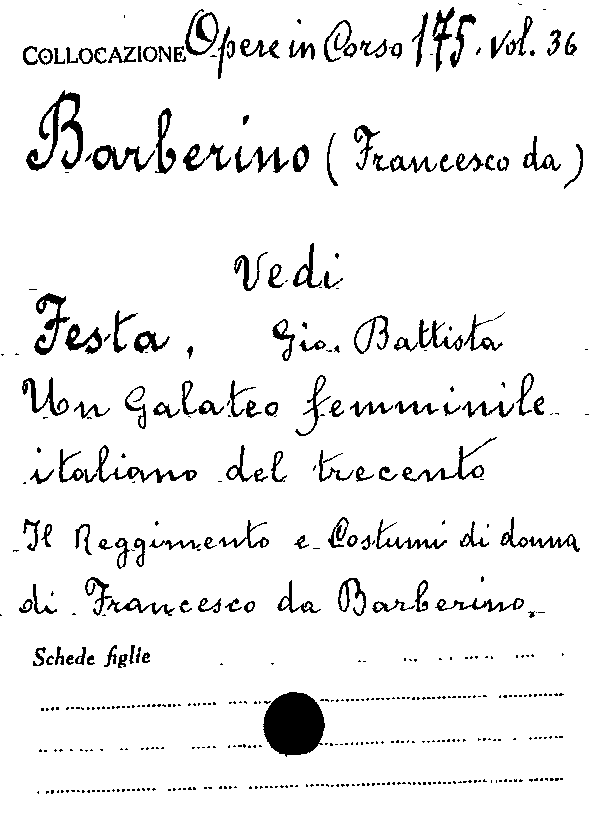 COLLOCAZIONE Opere in Corso 175. Vol. 36
Barberino (Francesco da)
Vedi
Festa, Gio. Battista
Un Galateo femminile
italiano del trecento
Il Reggimento e Costumi di donna
di Francesco da Barberino.
Schede figlie